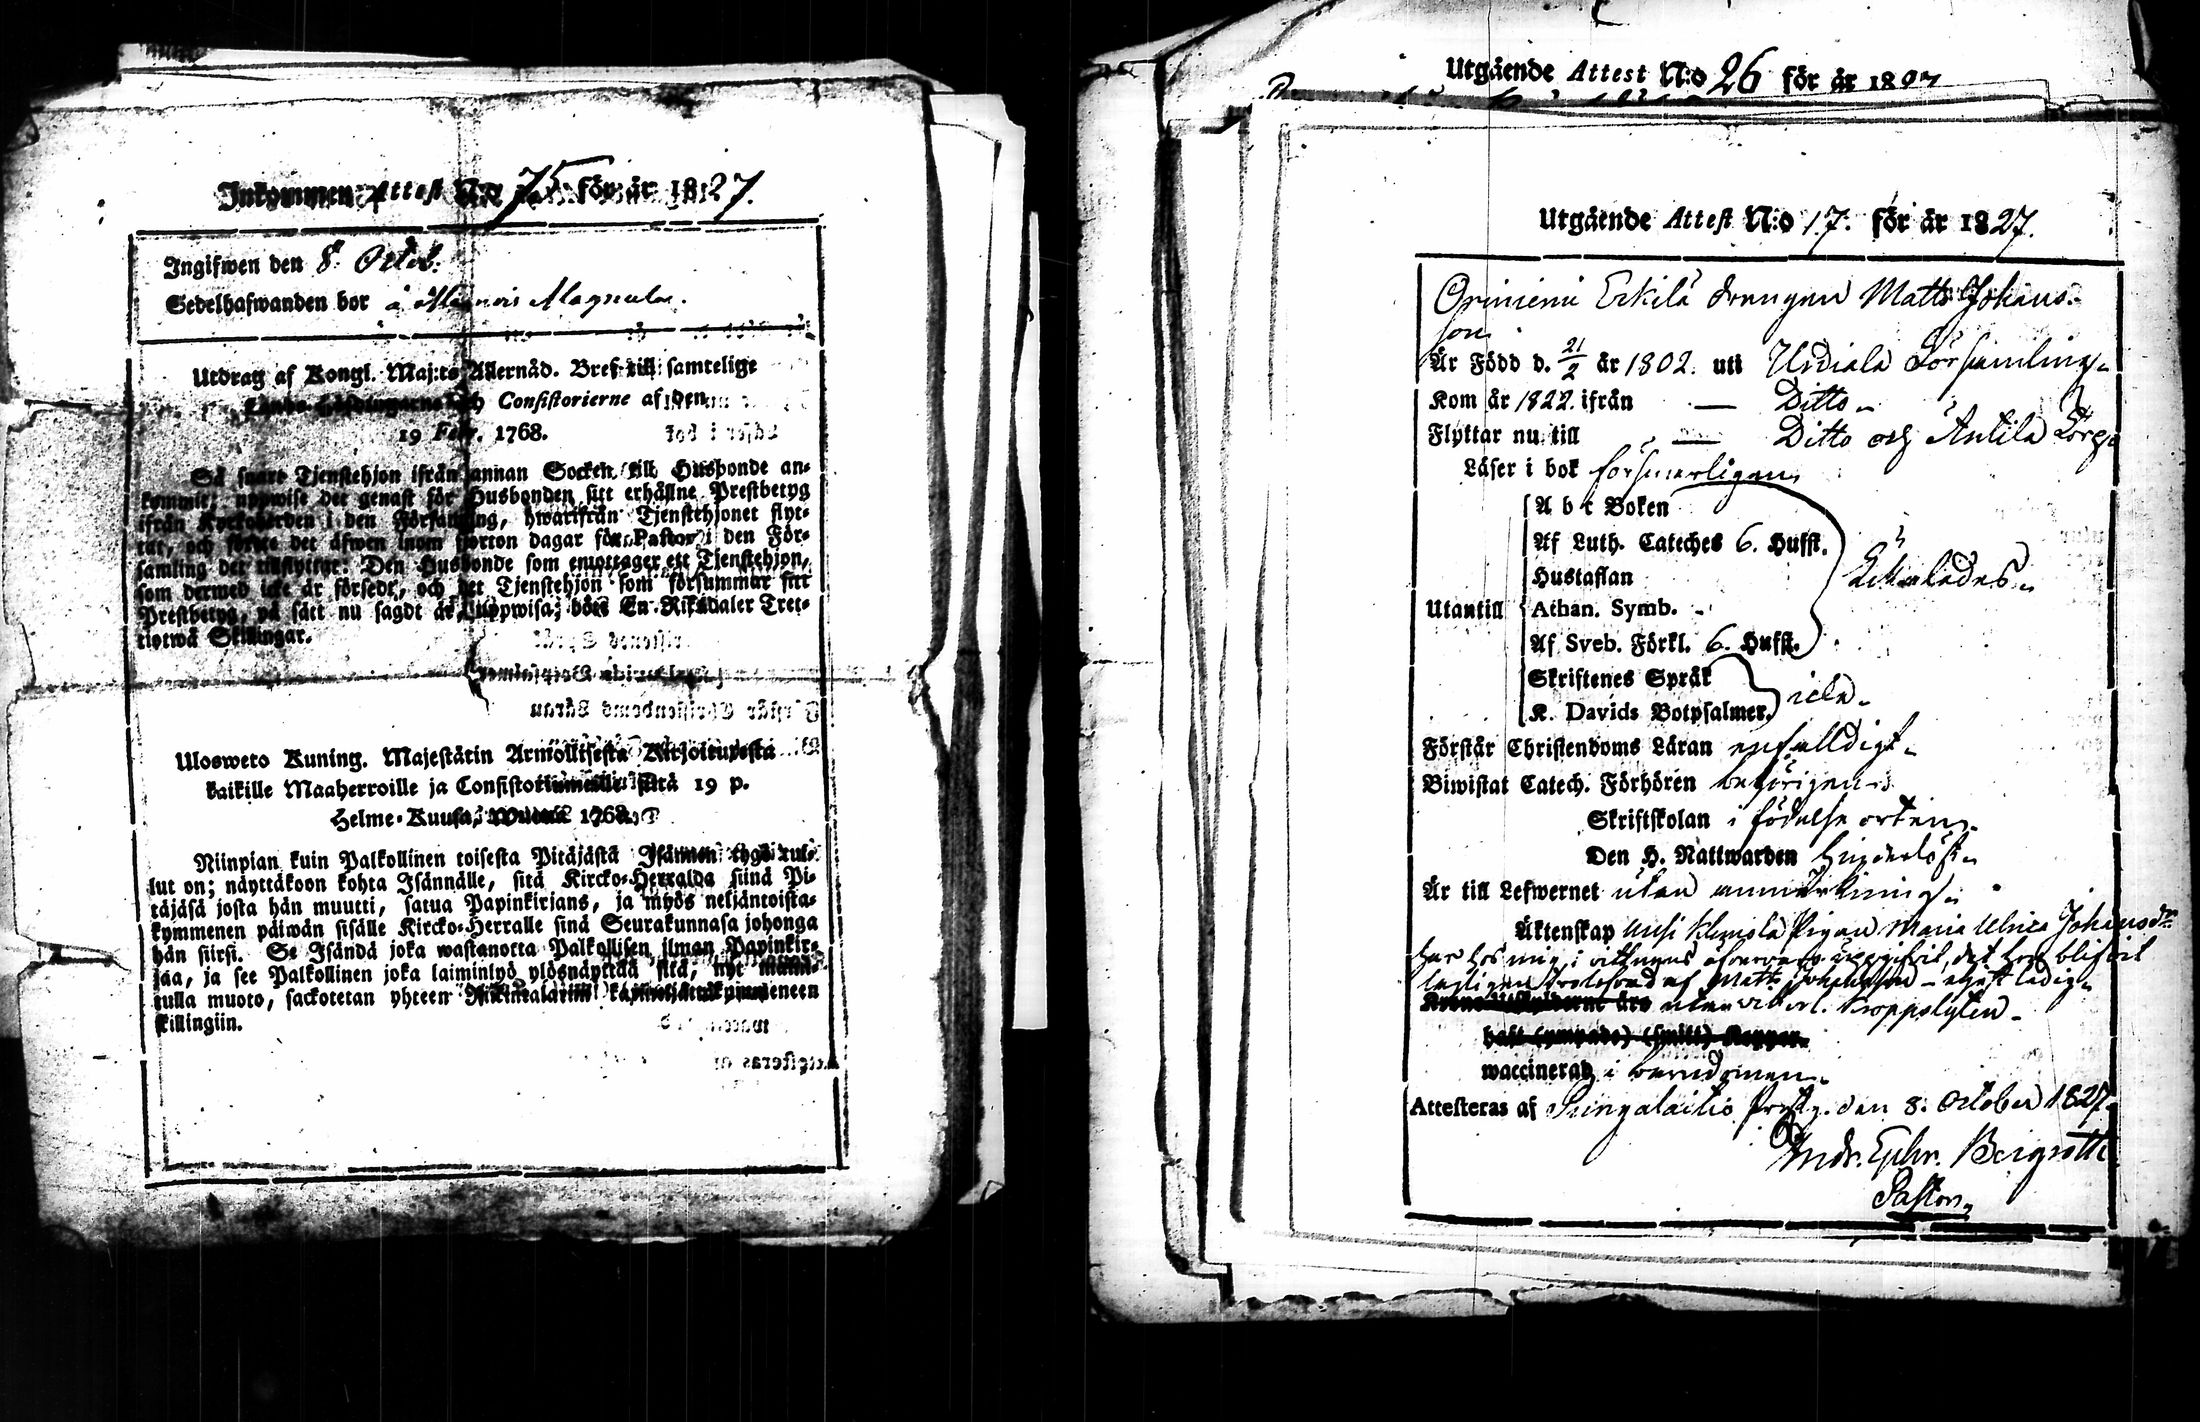 Inkommen Attest N:o 75 för år 1827.
Ingifwen den 8. Octob:
Sedelhafwanden bor å
Utdrag af Kongl. Maj:ts Allernåd. Bref till samtelige
Consistorierne af den
19 Febr. 1768.
Så snart Tjenstehjon ifrån annan Socken till Husbonde an-
kommit; uppwise det genast för Husbonden sitt erhållne Prestbetyg
ifrån Kyrkoherden i den Församling, hwarifrån Tjenstehjonet flyt-
tat, och förete det äfwen inom fjorton dagar för Pastor i den För-
samling det tilflyttat: Den Husbonde som emottager ett Tjenstehjon,
som dermed icke är försedt, och det Tjenstehjon som försummar sitt
Prestbetyg, på sätt nu sagdt är, uppwisa; böte En Riksdaler Tret-
tiotwå Skillingar.
Ulosweto Kuning. Majestätin Armollisesta Kirjoituxesta
kaikille Maaherroille ja Consistoriumeille siitä 19 p.
Helme-Kuusa, 1768.
Niinpian kuin Palkollinen toisesta Pitäjästä Isännen tygö tul-
lut on; näyttäköon kohta Isännälle, sitä Kircko-Herralda siinä Pi-
täjäsä josta hän muutti, satua Papinkirjans, ja myös neljäntoista-
kymmenen päiwän sisälle Kircko-Herralle siinä Seurakunnasa johonga
hän siirsi. Se Isändä joka wastanotta Palkollisen ilman Papinkir-
jaa, ja see Palkollinen joka laiminlyö ylösnäyttää sitä, nyt maini-
tulla muoto, sackotetan yhteen Rikintalarin kymmeneen
skillingiin.
Utgående Attest N:o 26 för år 1827
Utgående Attest N:o 17. för år 1827.
Erkilä drengen Matts Johans-
son
Är Född d. 21/2 år 1802. uti Urdiala Församling.
Kom år 1822. ifrån — Ditto
Flyttar nu till — Ditto och Anttila
Läser i bok försvarligen
A b c Boken
Af Luth. Cateches 6. Hufst.
Hustaflan
Utantill Athan. Symb.
Af Sveb. Förkl. 6. Hufst.
Likaledes
Skriftenes Språk
K. Davids Botpsalmer. icke
Förstår Christendoms Läran enfalldigt
Biwistat Catech. Förhören behörigen
Skriftskolan i födelse orten
Den H. Nattwarden
Är till Lefwernet utan anmärkning
Äktenskap Pigan Maria Ulrica Johansdr
har hos mig i vittnens öfvervaro det hon blifvit
lagligen af Matts Johansson - ledig
utan Kroppslyten
waccinerad i barndomen
Attesteras af Pungalaitio den 8. October 1827.
Andr. Ephr. Bergroth
Pastor